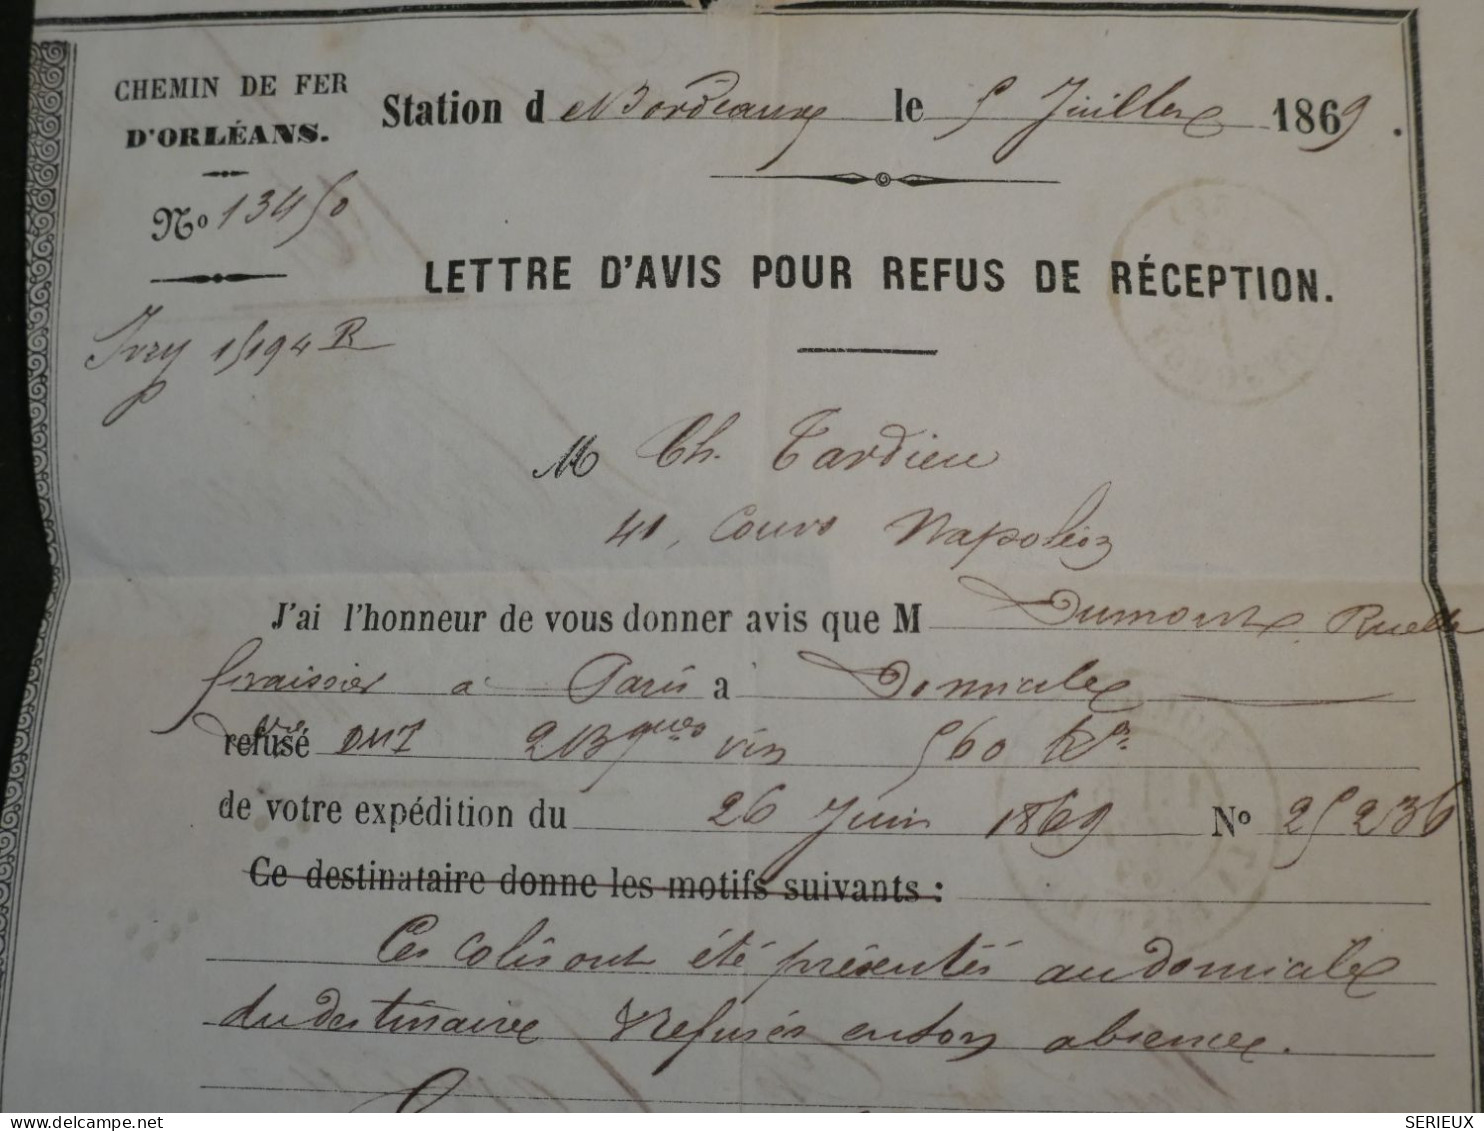 CHEMIN DE FER
D'ORLÉANS.
Station de Bordeaux le 5 Juillet 1869.
No 13450
LETTRE D'AVIS POUR REFUS DE RÉCEPTION.
Ivry 15194 R
M Ch. Tardieu
41, Cours Napoléon
J'ai l'honneur de vous donner avis que M Dumont, Ruelle
fraissier à Paris à Domicile
refusé 2 Bques vin 560 k
de votre expédition du 26 Juin 1869 No 25236
Ce destinataire donne les motifs suivants :
Ces colis ont été présentés au domicile
du destinaire & Refusés en son absence.
SERIEUX